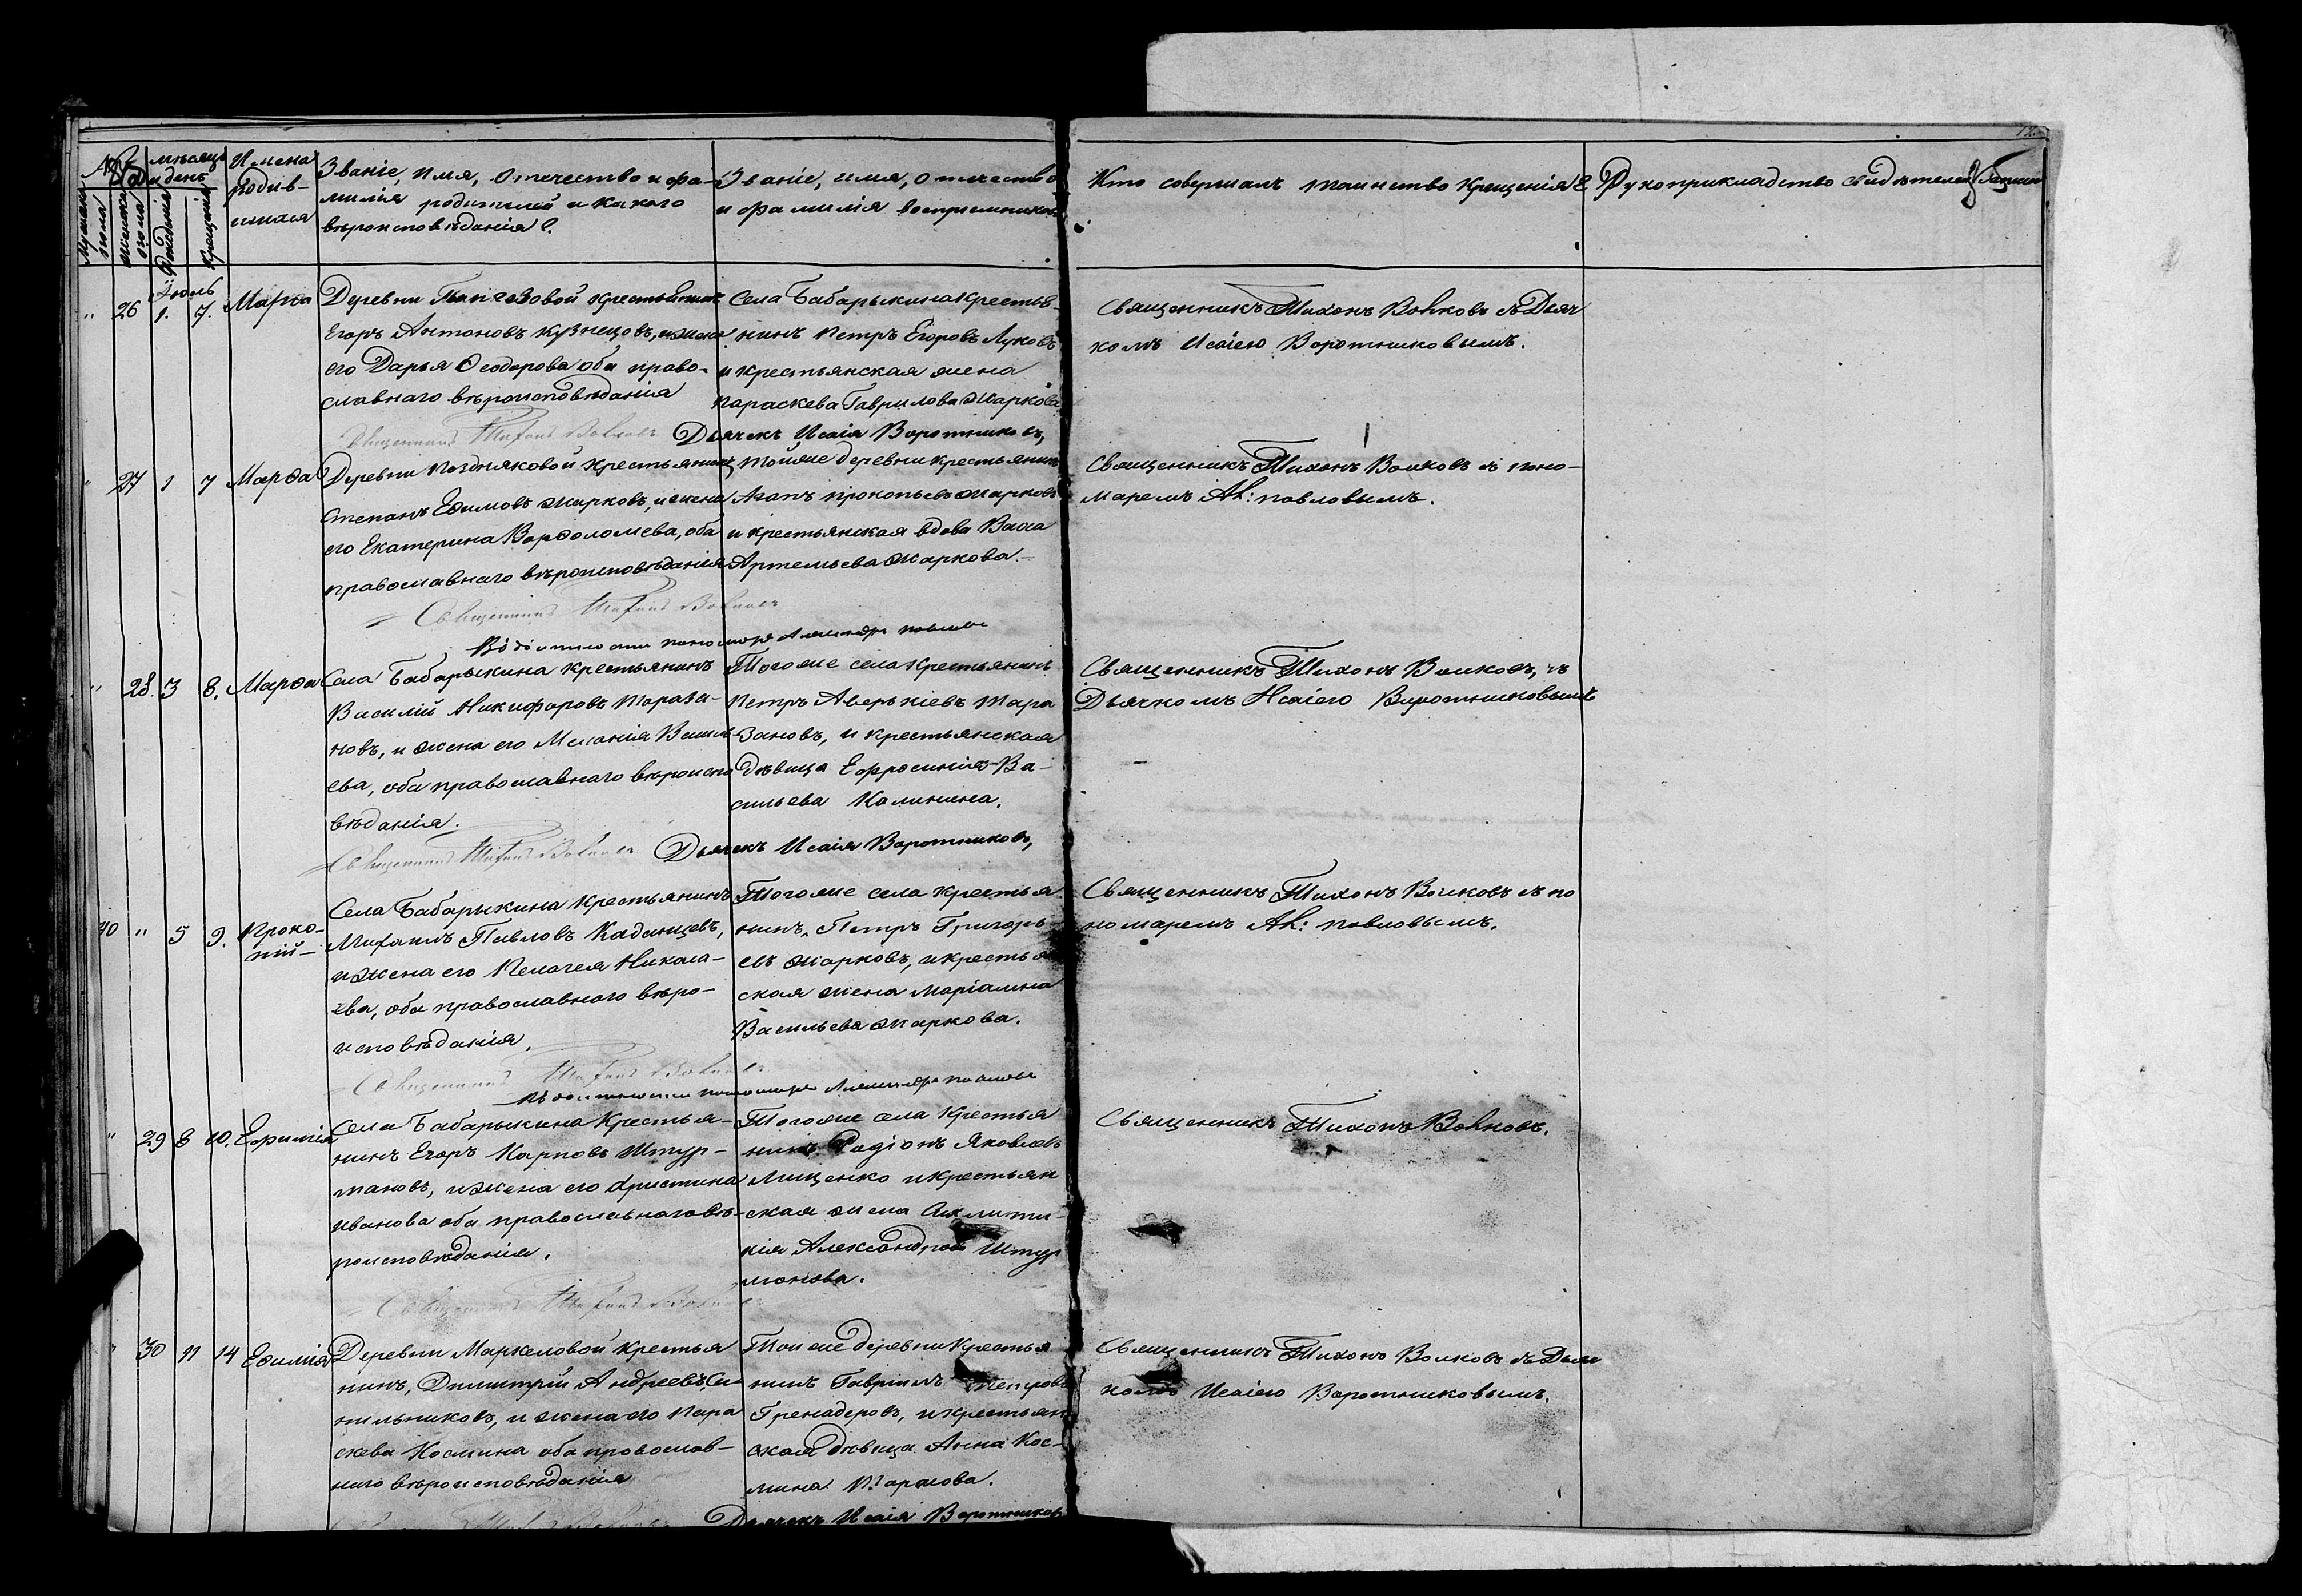 №
мѣсяцъ
и день
Мужска
пола
женска
пола
Рожденія
Крещенія
Имена
родив-
шихся
Званіе, Имя, Отечество и фа-
милія родителей и какого
вѣроисповѣданія?
Званіе, имя, отчество
и фамилія воспріемниковъ
Кто совершалъ таинство крещенія
Рукоприкладство свидѣтелей
Іюль
" 26 1. 7. Марѳа
Деревни крестьянинъ
Егоръ Антоновъ Кузнецовъ, и жена
его Дарья Ѳеодорова оба право-
славнаго вѣроисповѣданія
Села Бабарыкина крестья-
нинъ Петръ Егоровъ Луковъ
и крестьянская жена
Параскева Гаврилова Жаркова
Священникъ Тихонъ Волковъ съ Дьяч
комъ Исаіею Воротниковымъ.
Священникъ Тихонъ Волковъ Дьячекъ Исаія Воротниковъ,
" 27 1 7 Марѳа
Деревни Поздняковой крестьянинъ
Степанъ Еѳимовъ Жарковъ, и жена
его Екатерина Варѳоломева, оба
православнаго вѣроисповѣданія
Тойже деревни крестьянинъ
Агапъ Прокопьевъ Жарковъ
и крестьянская вдова Васса
Артемьева Жаркова.
Священникъ Тихонъ Волковъ съ поно-
маремъ Ал: Павловымъ.
Священникъ Тихонъ Волковъ
пономаря Александра Павлова
" 28. 3 8. Марѳа
Села Бабарыкина крестьянинъ
Василій Никифоровъ Тараза-
новъ, и жена его Меланія Василь-
ева, оба православнаго вѣроиспо
вѣданія.
Тогоже села крестьянинъ
Петръ Аверькіевъ Тара
зановъ, и крестьянская
дѣвица Ефросинія Ва-
сильева Калинина.
Священникъ Тихонъ Волковъ, съ
Дьячкомъ Исаіею Воротниковымъ
Священникъ Тихонъ Волковъ Дьячекъ Исаія Воротниковъ,
40 " 5 9. Проко-
пій-
Села Бабарыкина крестьянинъ
Михаилъ Павловъ Каданцевъ,
и жена его Пелагея Никола-
ева, оба православнаго вѣро-
исповѣданія.
Тогоже села крестья
нинъ, Петръ Григорь-
евъ Жарковъ, и крестьян
ская жена Маріамна
Васильева Жаркова.
Священникъ Тихонъ Волковъ съ по
номаремъ Ал: Павловымъ.
Священникъ Тихонъ Волковъ
пономаря Александра Павлова
" 29 8 10. Ефимія
Села Бабарыкина Крестья-
нинъ Егоръ Карповъ Штур-
мановъ, и жена его Христина
Иванова оба православнаго вѣ-
роисповѣданія.
Тогоже села крестья
нинъ Родіонъ Яковлевъ
Мищенко и крестьян
ская жена
Александрова Штур
манова.
Священникъ Тихонъ Волковъ.
Священникъ Тихонъ Волковъ
" 30 11 14 Еѳимія
Деревни Маркеловой крестья
нинъ, Димитрій Андреевъ Си-
нильниковъ, и жена его Пара
скева Космина оба православ-
наго вѣроисповѣданія
Той же деревни крестья
нинъ Гавріилъ Петровъ
Гренадеровъ, и крестьян
ская дѣвица Анна Кос-
мина Тарасова.
Священникъ Тихонъ Волковъ съ Дьяч
комъ Исаіею Воротниковымъ.
Дьячекъ Исаія Воротниковъ